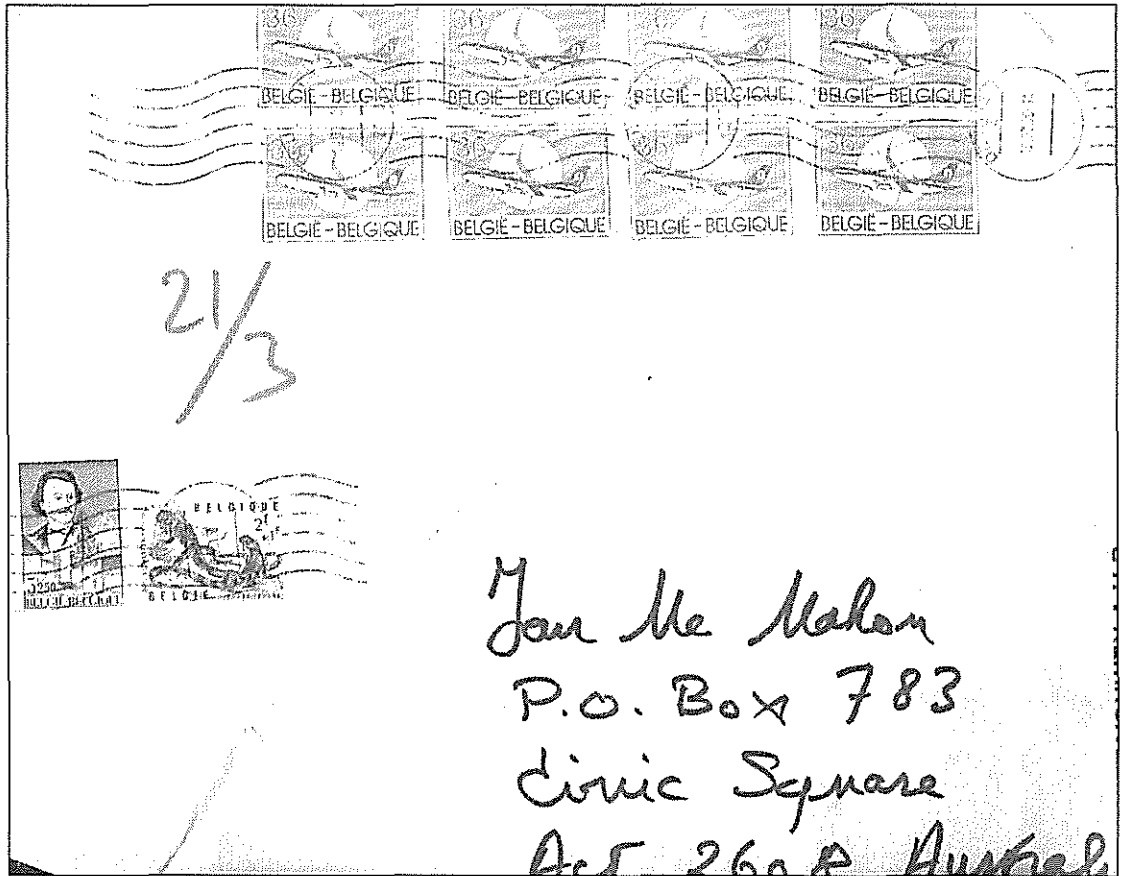 36 36 36 36
BELGIË-BELGIQUE BELGIË-BELGIQUE BELGIË-BELGIQUE BELGIË-BELGIQUE
36 36 36 36
BELGIË-BELGIQUE BELGIË-BELGIQUE BELGIË-BELGIQUE BELGIË-BELGIQUE
21/3
BELGIQUE
2F
+1F
BELGIE
Jan Mc Mahon
P.O. Box 783
Civic Square
Act 2608 Austral